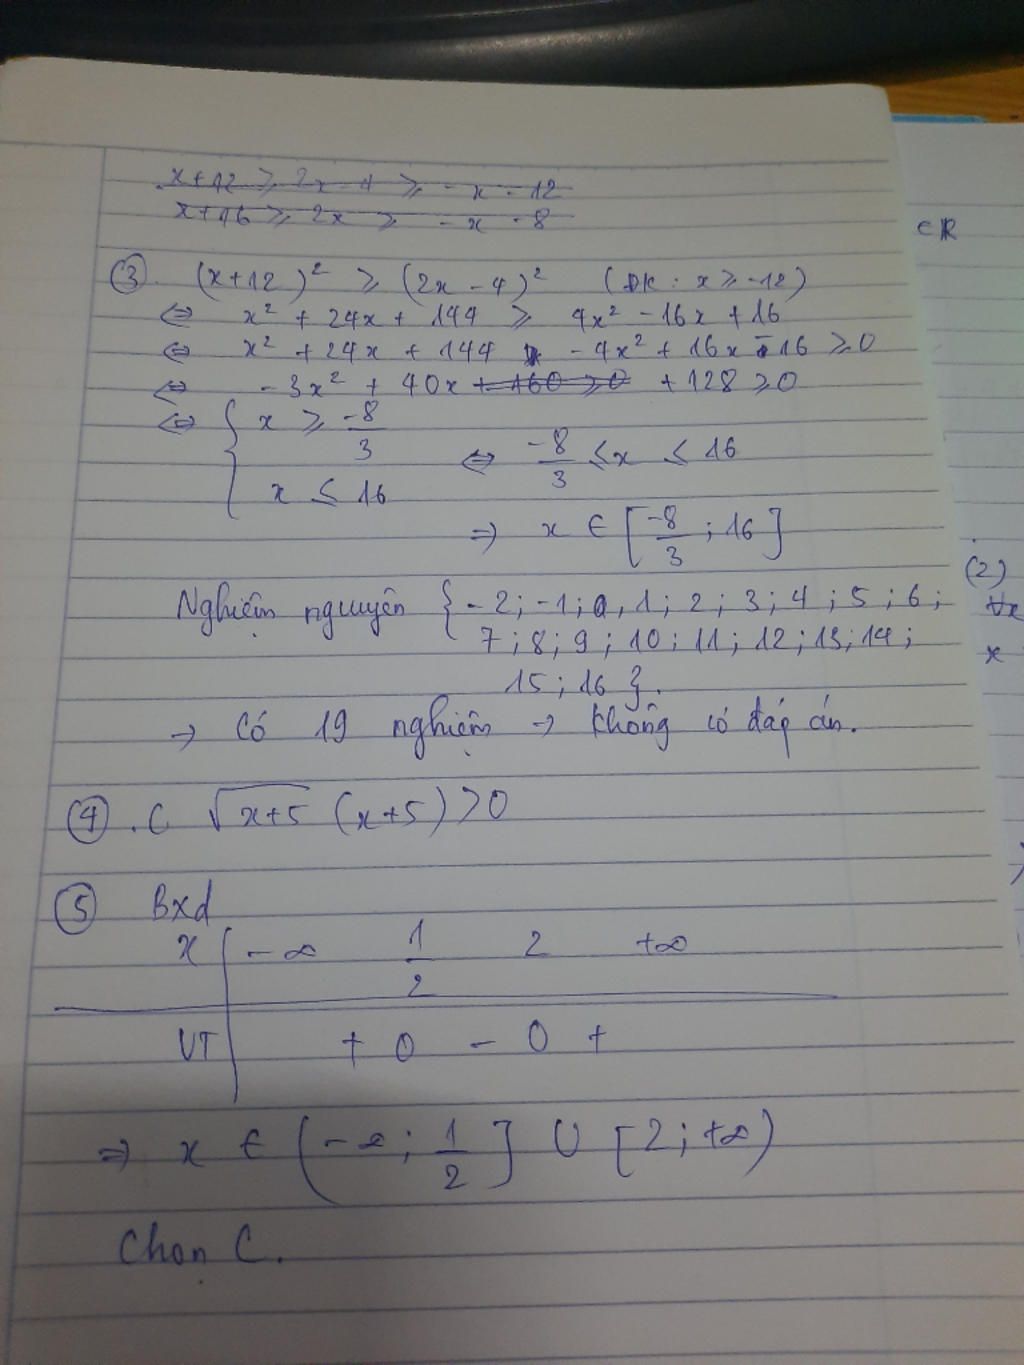 x+12 ⩾ 2x-4 ⩾ -x-12
x+16 ⩾ 2x ⩾ -x-8
③. (x+12)² ⩾ (2x-4)² (ĐK: x ⩾ -12)
⇔ x² + 24x + 144 ⩾ 4x² - 16x + 16
⇔ x² + 24x + 144 - 4x² + 16x - 16 ⩾ 0
⇔ -3x² + 40x + 160 ⩾ 0 + 128 ⩾ 0
⇔ { x ⩾ -8/3
x ≤ 16 ⇔ -8/3 ≤ x ≤ 16
⇒ x ∈ [-8/3 ; 16]
Nghiệm nguyên {-2; -1; 0, 1; 2; 3; 4; 5; 6;
7; 8; 9; 10; 11; 12; 13; 14;
15; 16}.
→ Có 19 nghiệm → Không có đáp án.
④. C √x+5 (x+5) > 0
⑤ Bxd
x | -∞ 1/2 2 +∞
VT | + 0 - 0 +
⇒ x ∈ (-∞; 1/2] ∪ [2; +∞)
Chọn C.
∈ℝ
(2)
∀x
x